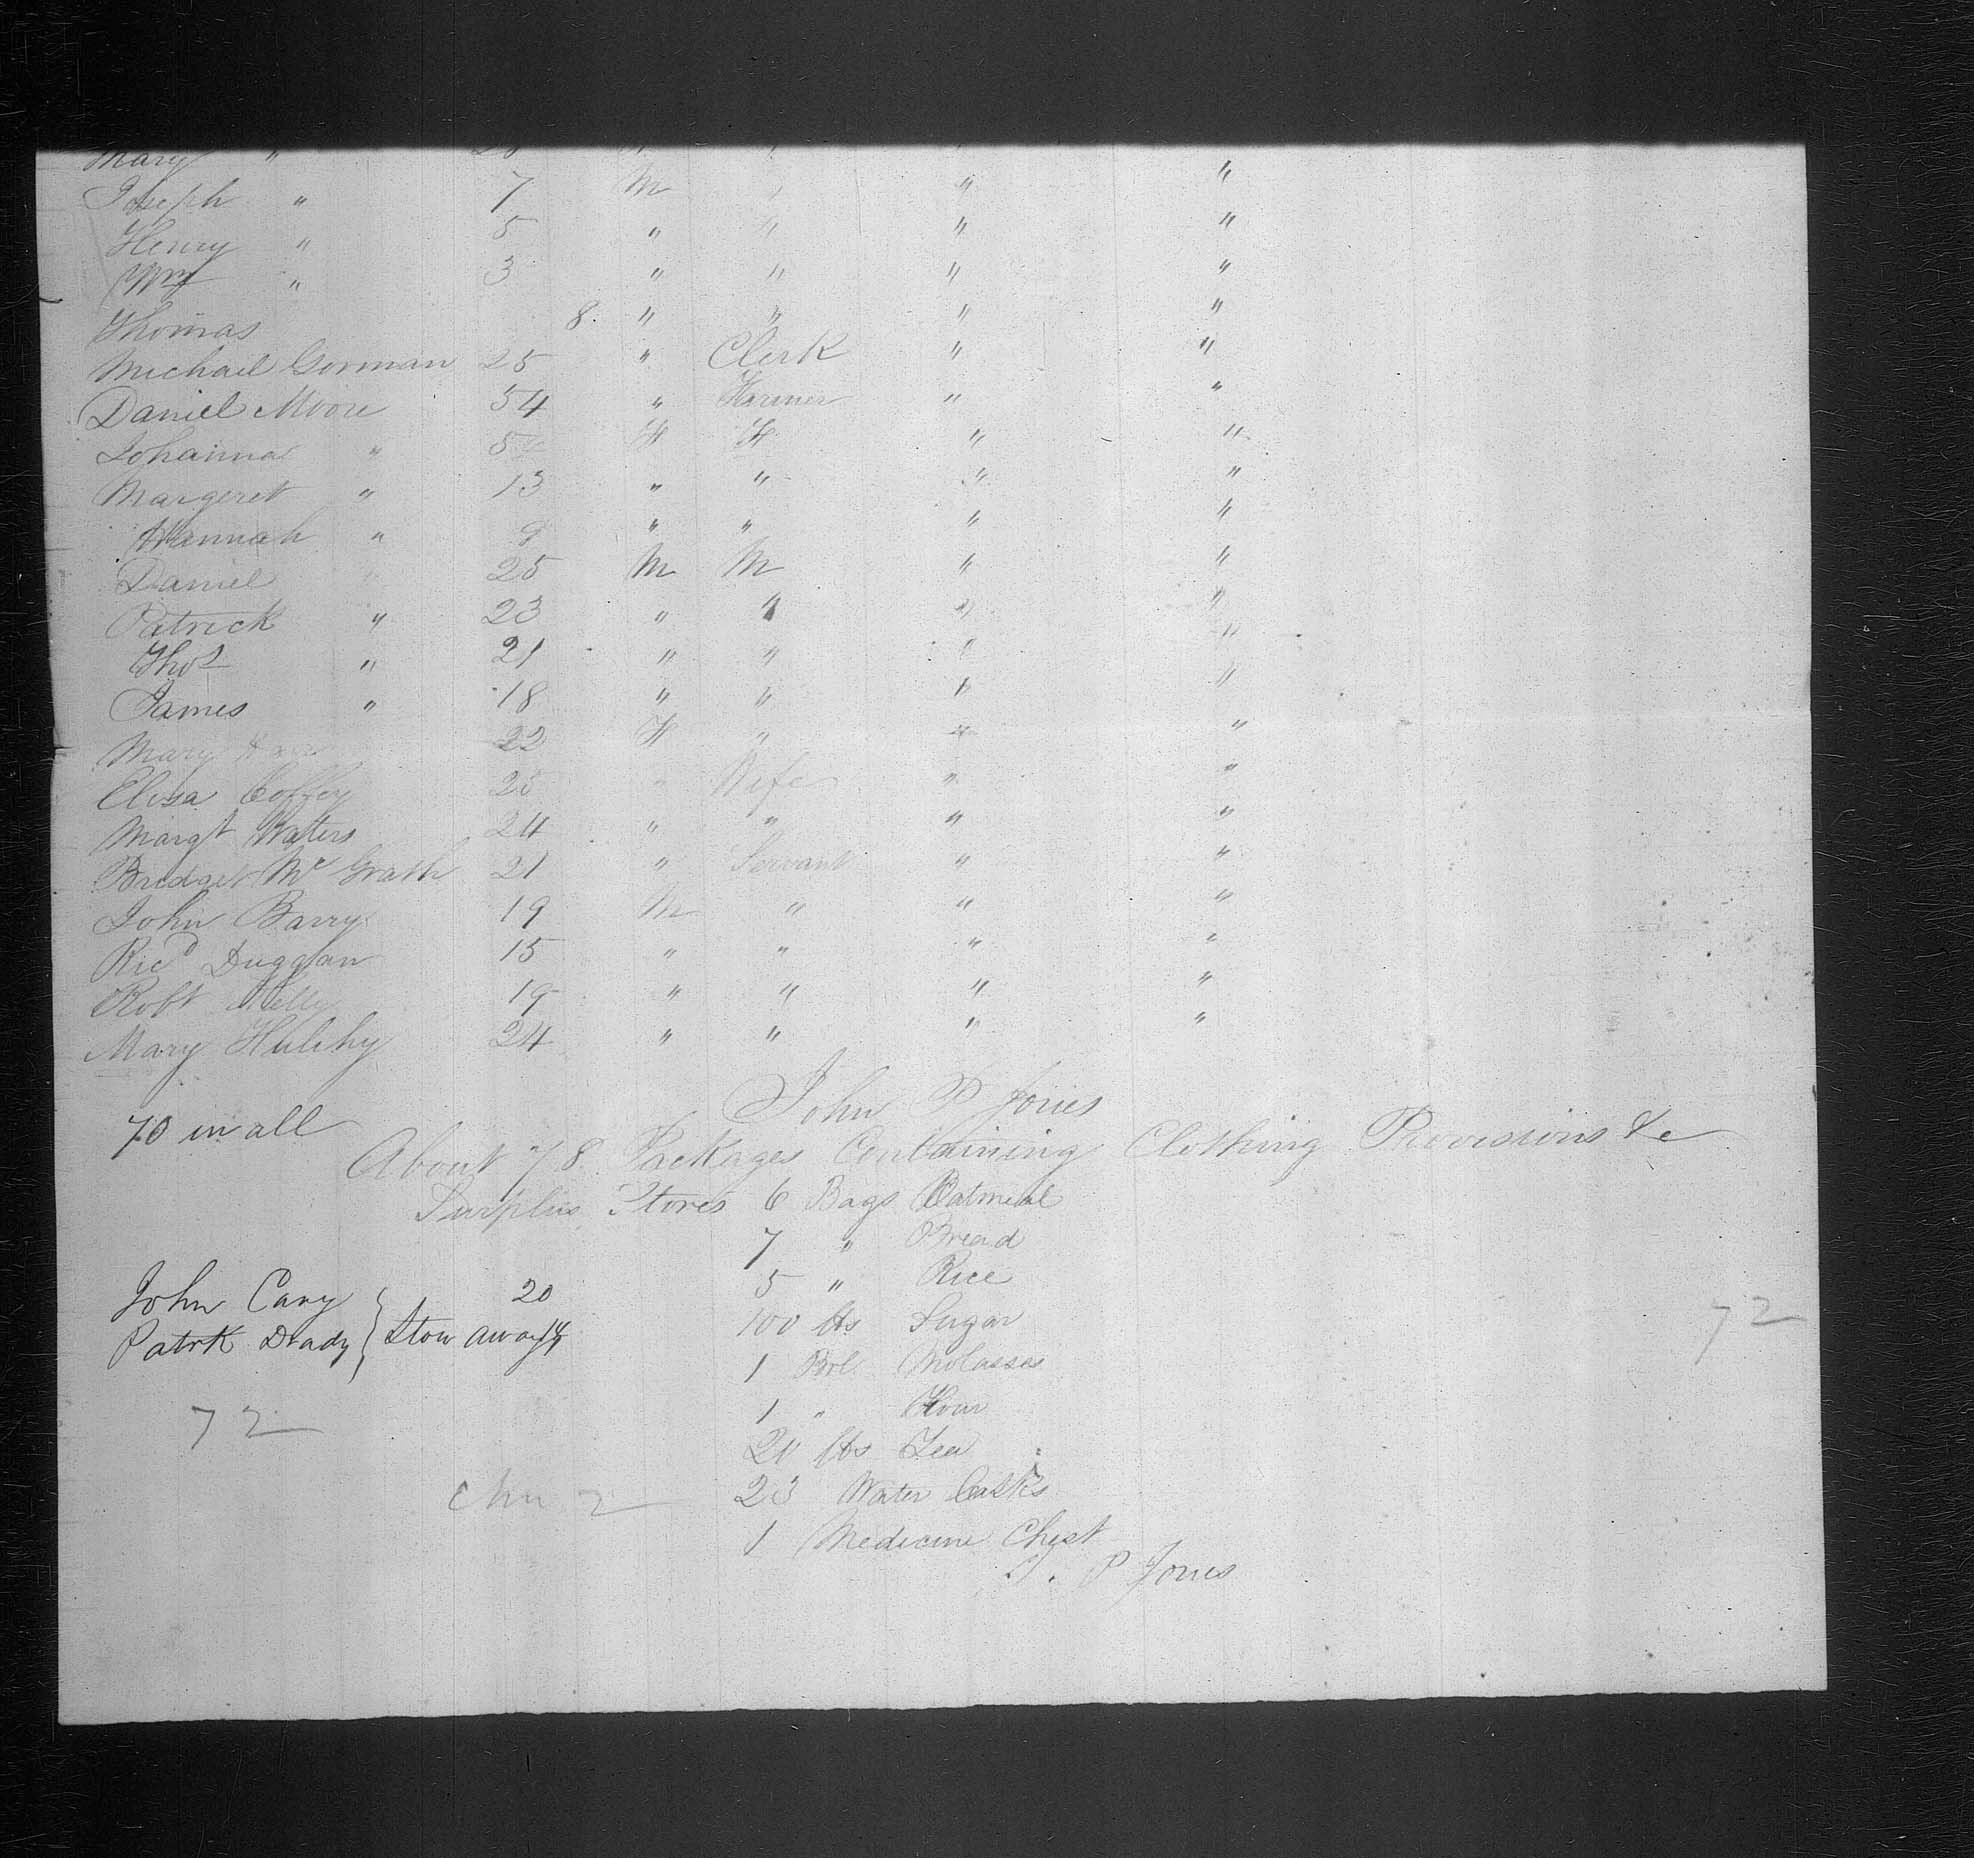 Mary "
Joseph " 7 M " " "
Henry " 5 " " " "
Wm " 3 " " " "
Thomas 8 " " " "
Michael Gorman 25 " Clerk " "
Daniel Moore 54 " Farmer " "
Johanna " 5 F F " "
Margeret " 13 " " " "
Hannah " 9 " " " "
Daniel " 25 M M " "
Patrick " 23 " " " "
Thos " 21 " " " "
James " 18 " " " "
Mary 22 F " " "
Eliza Coffey 25 " Wife " "
Margt Waters 24 " " " "
Bridget Mc Grath 21 " Servant " "
John Barry 19 M " " "
Ricd Duggan 15 " " " "
Robt Kelly 19 " " " "
Mary Hulihy 24 " " " "
John P Jones
70 in all
About 78 Packages Containing Clothing Provisions &c
Surplus Stores 6 Bags Oatmeal
7 " Bread
5 " Rice
John Cary 20
100 lbs Sugar
Patrk Drady } Stow away 14
72
1 Brl Molasses
1 " Flour
72
20 lbs Tea
23 Water Casks
2
1 Medicine Chest
J. P Jones